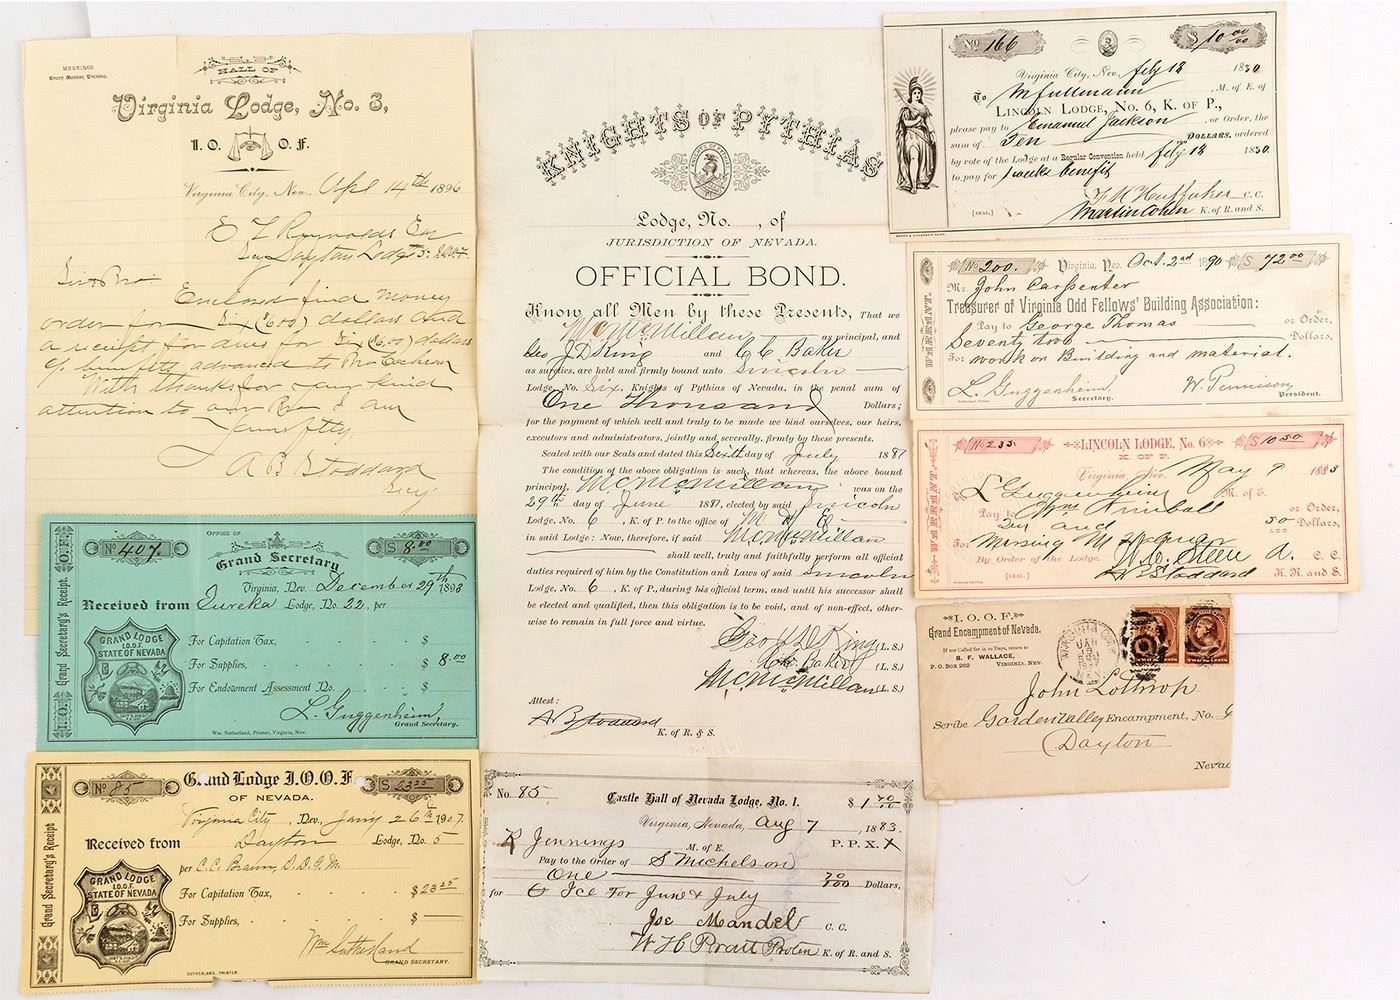 MEETINGS
Every Monday Evening.
HALL OF
Virginia Lodge, No. 3,
I. O. O. F.
Virginia City, Nev., Apl 14th 1896
E T Reynolds Esq
Sec Dayton Lodge 5 I.O.O.F.
Sir & Bro
Enclosed find money
order for Six ($6.00) dollars and
a receipt for dues for Six ($6.00) dollars
of benefits advanced to Bro
With thanks for your kind
attention to our Bro I am
Yours fty,
A B Stoddard
Secy
OFFICE OF
Grand Secretary
No 407. $ 8.00
Virginia, Nev. December 29th 1898
Received from Eureka Lodge, No. 22, per
Grand Secretary's Receipt.
I.O.O.F.
GRAND LODGE
I.O.O.F.
STATE OF NEVADA
For Capitation Tax, $
For Supplies, $ 8.00
For Endowment Assessment No. $
L. Guggenheim,
Grand Secretary.
Wm. Sutherland, Printer, Virginia, Nev.
No 85 Grand Lodge I.O.O.F. $ 23 25
OF NEVADA.
Virginia City, Nev., Jany 26th 1907.
Received from Dayton Lodge, No. 5
per C.C. Braun, D.D.G.M.
Grand Secretary's Receipt
GRAND LODGE
I.O.O.F.
STATE OF NEVADA
For Capitation Tax, $ 23 25
For Supplies, $
Wm Sutherland
GRAND SECRETARY.
SUTHERLAND, PRINTER.
KNIGHTS OF PYTHIAS
Lodge, No. , of
JURISDICTION OF NEVADA.
OFFICIAL BOND.
Know all Men by these Presents, That we
M C McMillan as principal, and
Geo J D King and C C Baker
as supplies, are held and firmly bound unto Lincoln
Lodge No. Six, Knights of Pythias of Nevada, in the penal sum of
One Thousand Dollars;
for the payment of which well and truly to be made we bind ourselves, our heirs,
executors and administrators, jointly and severally, firmly by these presents.
Sealed with our Seals and dated this Sixth day of July 1887
The condition of the above obligation is such, that whereas, the above bound
principal, M C McMillan was on the
29th day of June 1887, elected by said Lincoln
Lodge, No. 6, K. of P. to the office of M of E
in said Lodge: Now, therefore, if said M C McMillan
shall well, truly and faithfully perform all official
duties required of him by the Constitution and Laws of said Lincoln
Lodge, No. 6, K. of P., during his official term, and until his successor shall
be elected and qualified, then this obligation is to be void, and of non-effect, other-
wise to remain in full force and virtue.
Geo J D King (L. S.)
C C Baker (L. S.)
M C McMillan (L. S.)
Attest:
A B Stoddard
K. of R. & S.
No. 85 Castle Hall of Nevada Lodge, No. 1. $ 1 70/00
Virginia, Nevada, Aug 7, 1883.
R Jennings M. of E. P. P. X. X
Pay to the Order of S Michelson
One 70/100 Dollars,
for Ice For June & July
Joe Mandel C. C.
W H Pratt Protem K. of R. and S.
No 166 $ 10 00/00
Virginia City, Nev., July 18 1880
To M Fullmann, M. of E. of
LINCOLN LODGE, No. 6, K. of P.,
please pay to Emanuel Jackson, or Order, the
sum of Ten DOLLARS, ordered
by vote of the Lodge at a Regular Convention held July 18 1880.
to pay for 1 weeks benefit
[SEAL.] Huffaker C. C.
Martin Cohn K. of R. and S.
No 200. Virginia, Nev. Oct. 2nd 1890 $ 72 00
Mr. John Carpenter
Treasurer of Virginia Odd Fellows' Building Association:
Pay to George Thomas or Order,
Seventy two Dollars,
For work on Building and material.
L. Guggenheim, W. Pennison
Secretary. President.
No 235 LINCOLN LODGE, No. 6 $ 10 50
K. OF P.
Virginia Nev. May 9 1883
To L Guggenheim M. of E.
Pay to Wm Kimball or Order,
Ten and 50/100 Dollars,
For Nursing M
By Order of the Lodge. W. C. Steele A. C. C.
[SEAL] A B Stoddard K. R. and S.
I. O. O. F.
Grand Encampment of Nevada.
If not Called for in 10 Days, return to
B. F. WALLACE,
P. O. BOX 262 VIRGINIA, NEV.
VIRGINIA CITY
JAN
John Lothrop
Scribe Garden Valley Encampment, No. 6
Dayton
Nevad